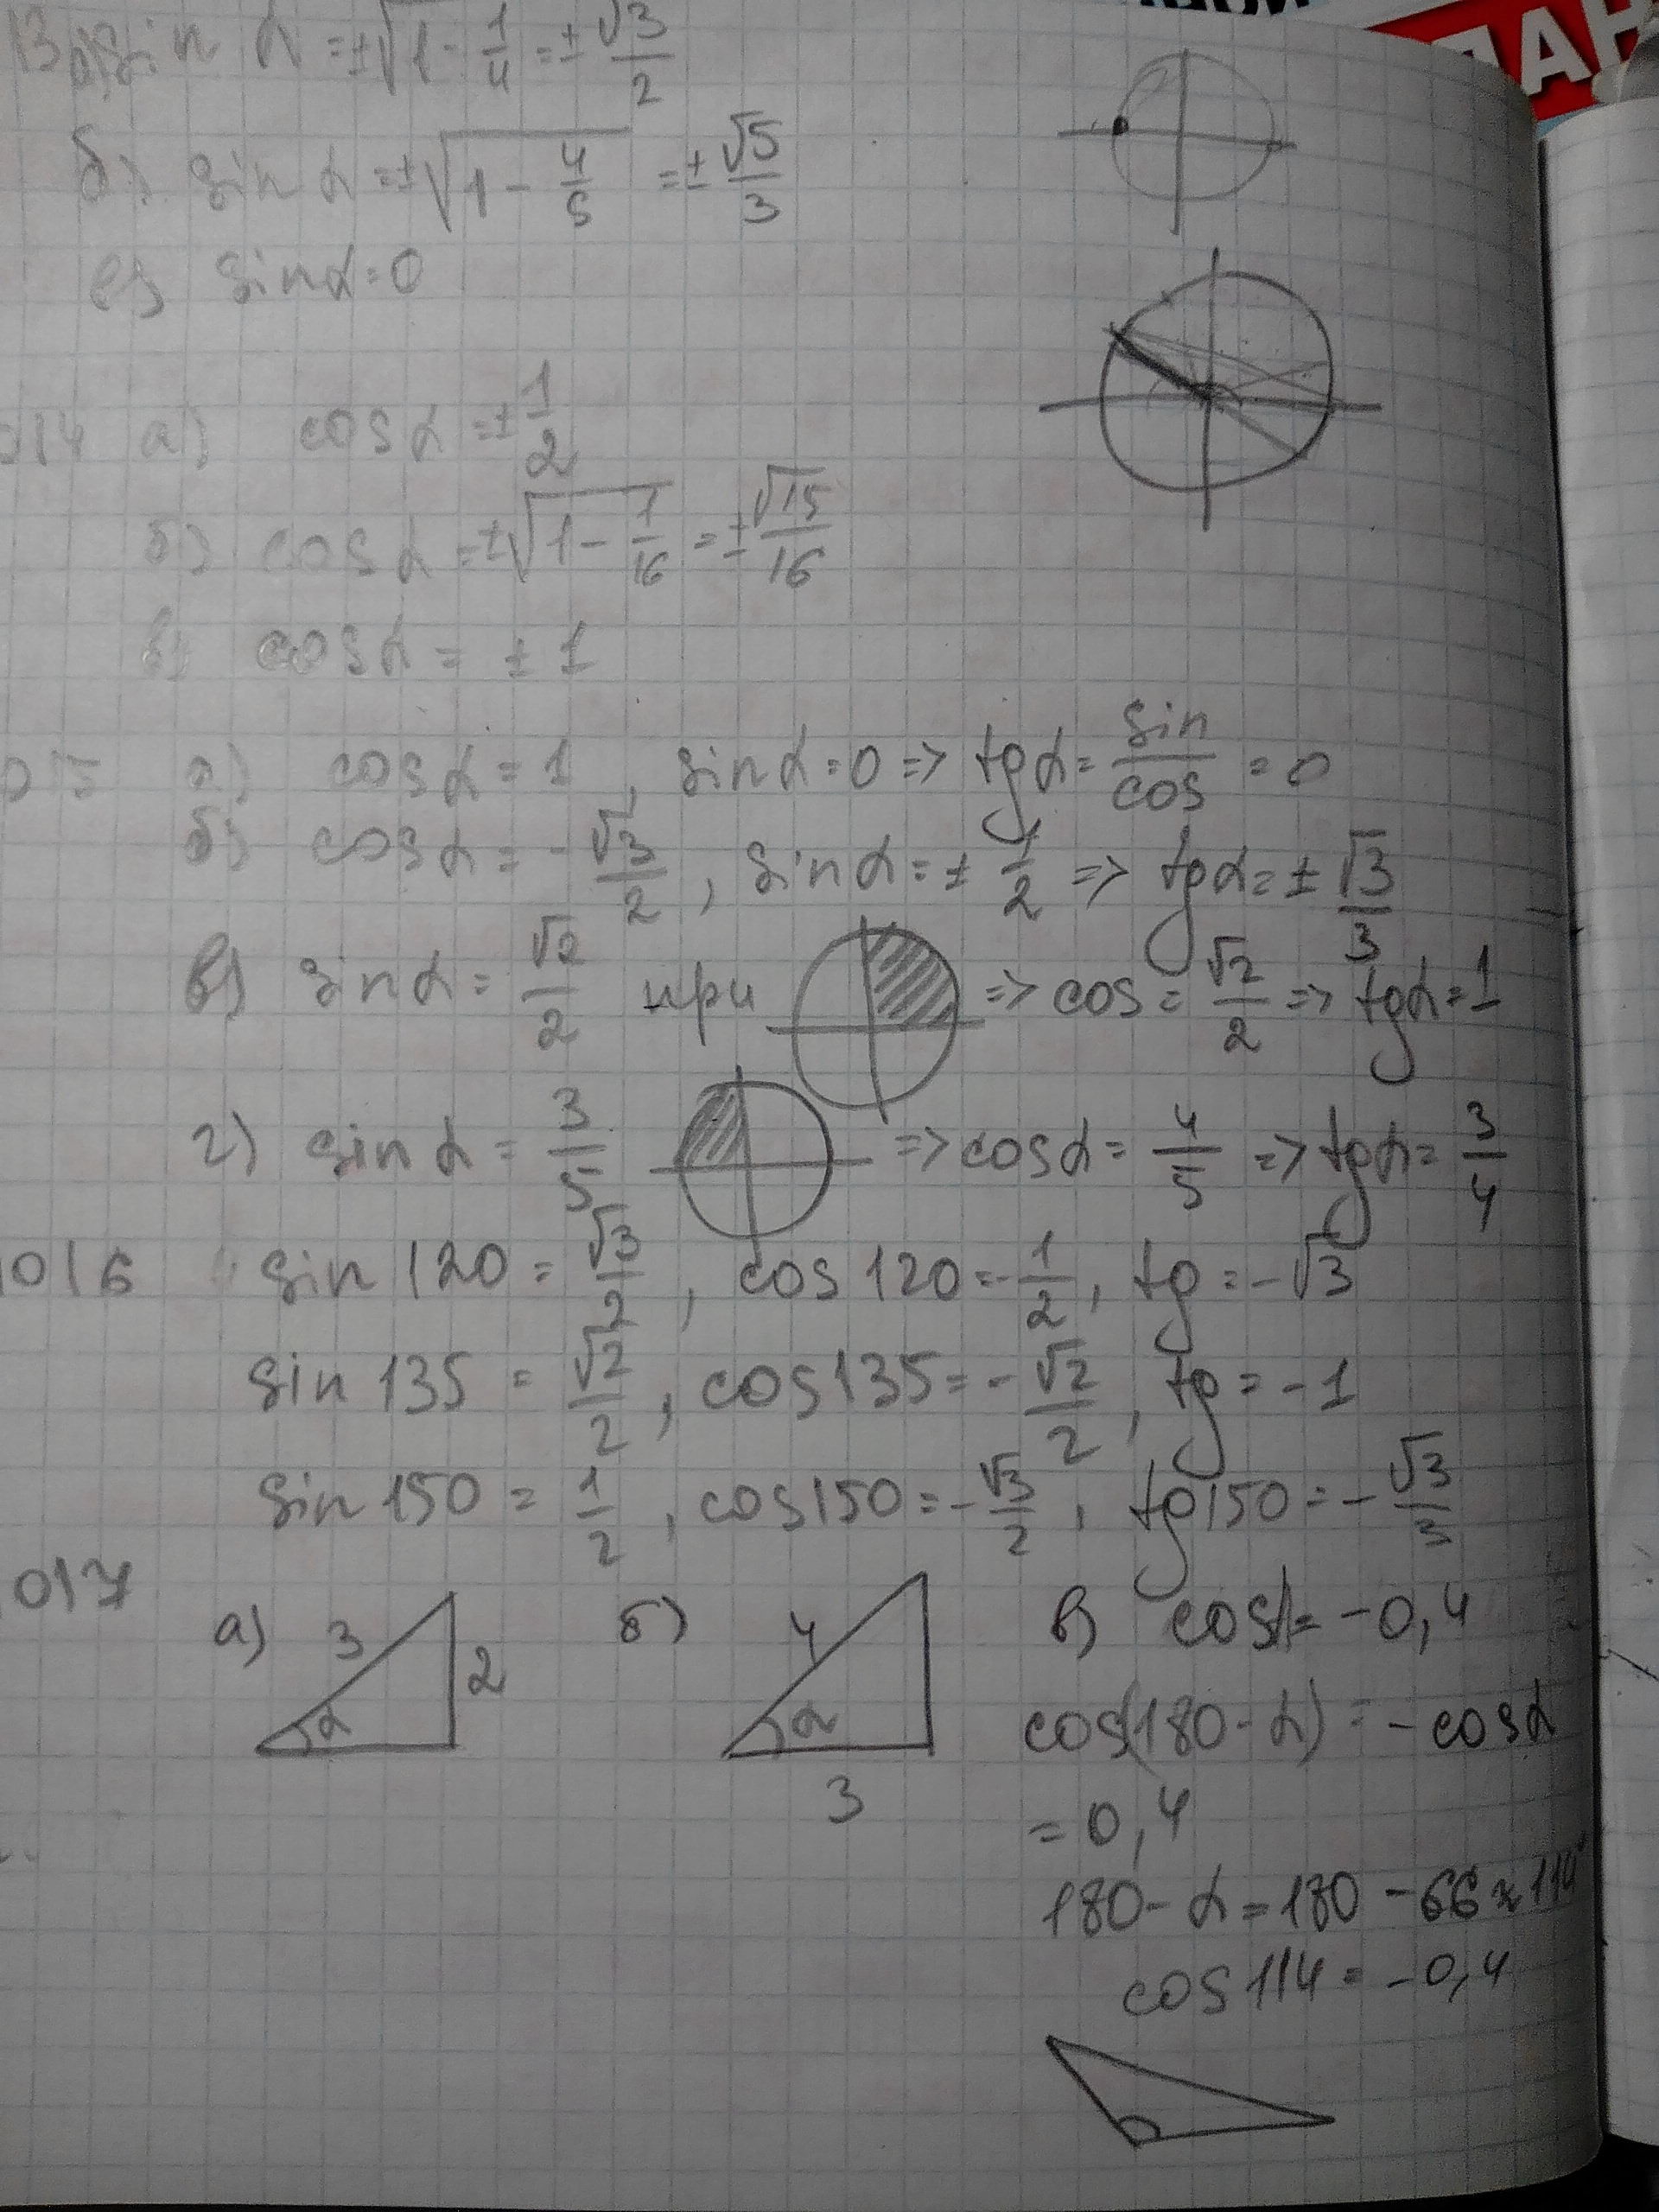 13 а) sin α = ±√1 - 1/4 = ± √3/2
б) sin α = ±√1 - 4/5 = ± √5/3
в) sin α = 0
014 а) cos α = ± 1/2
б) cos α = ±√1 - 1/16 = ± √15/16
в) cos α = ± 1
015 а) cos α = 1, sin α = 0 => tg α = sin/cos = 0
б) cos α = - √3/2, sin α = ± 1/2 => tg α = ± √3/3
в) sin α = √2/2 при => cos = √2/2 => tg α = 1
г) sin α = 3/5 => cos α = 4/5 => tg α = 3/4
1016 sin 120 = √3/2, cos 120 = - 1/2, tg = - √3
sin 135 = √2/2, cos 135 = - √2/2, tg = - 1
sin 150 = 1/2, cos 150 = - √3/2, tg 150 = - √3/3
017
а) 3 2 α
б) 4 α 3
в) cos α = - 0,4
cos(180 - α) = - cos α
= 0,4
180 - α = 180 - 66 ≈ 114°
cos 114 = - 0,4